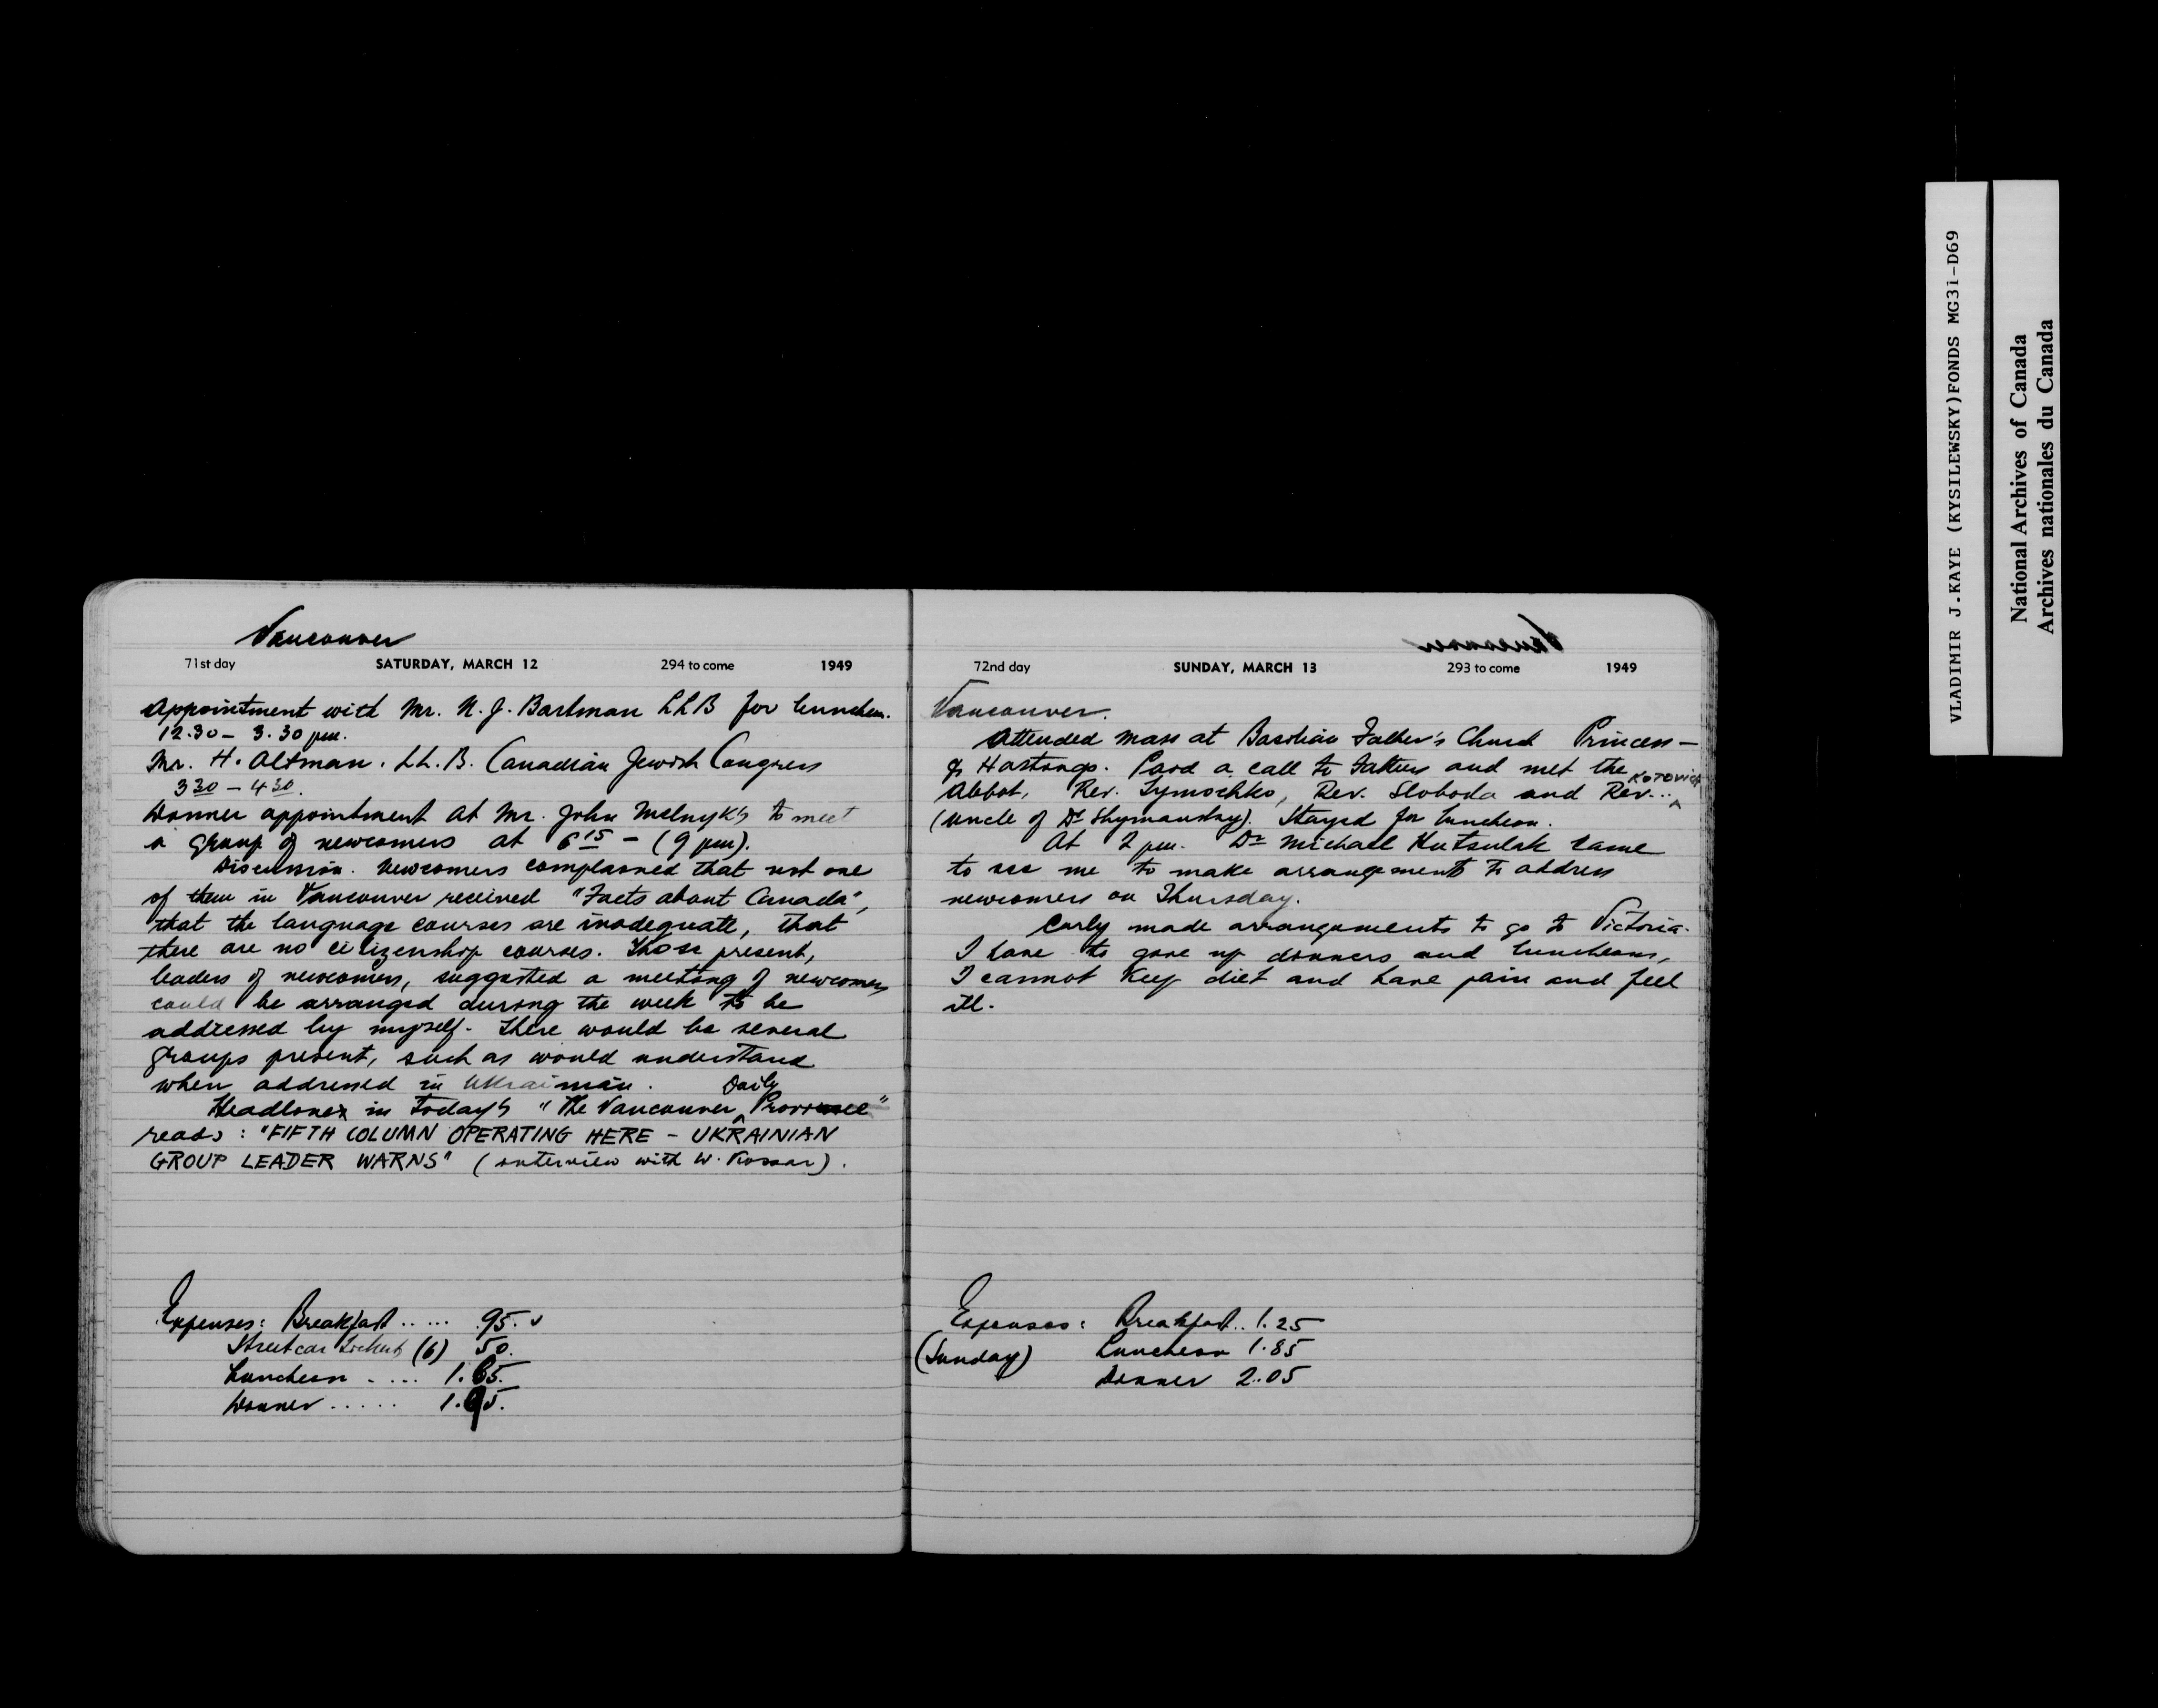 Vancouver
71st day SATURDAY, MARCH 12 294 to come 1949
Appointment with Mr. N. J. Bartman LLB for luncheon.
12.30 – 3.30 pm.
Mr. H. Altman. LL.B. Canadian Jewish Congress
3 30 – 4 30.
Dinner appointment at Mr. John Melnyk's to meet
a group of newcomers at 6 15 – (9 pm).
Discussion. Newcomers complained that not one
of them in Vancouver received "Facts about Canada",
that the language courses are inadequate, that
there are no citizenship courses. Those present,
leaders of newcomers, suggested a meeting of newcomers
could be arranged during the week to be
addressed by myself. There would be several
groups present, such as would understand
when addressed in Ukrainian.
Headlines in today's "The Vancouver Daily Province"
reads: "FIFTH COLUMN OPERATING HERE – UKRAINIAN
GROUP LEADER WARNS" (interview with W. Kossar).
Expenses: Breakfast ..... .95.
Streetcar tickets (6) 50.
Luncheon ..... 1.65.
Dinner ..... 1.95.
72nd day SUNDAY, MARCH 13 293 to come 1949
Vancouver.
Attended mass at Basilian Father's Church Princess –
& Hastings. Paid a call to Fathers and met the
Abbot, Rev. Tymochko, Rev. Sloboda and Rev... Kotovich
(uncle of Dr Shymansky). Stayed for luncheon.
At 2 pm. Dr Michael Hutsulak came
to see me to make arrangement to address
newcomers on Thursday.
Early made arrangements to go to Victoria.
I have to give up dinners and luncheons,
I cannot keep diet and have pain and feel
ill.
Expenses: Breakfast.. 1.25
(Sunday) Luncheon 1.85
Dinner 2.05
VLADIMIR J.KAYE (KYSILEWSKY)FONDS MG31-D69
National Archives of Canada
Archives nationales du Canada